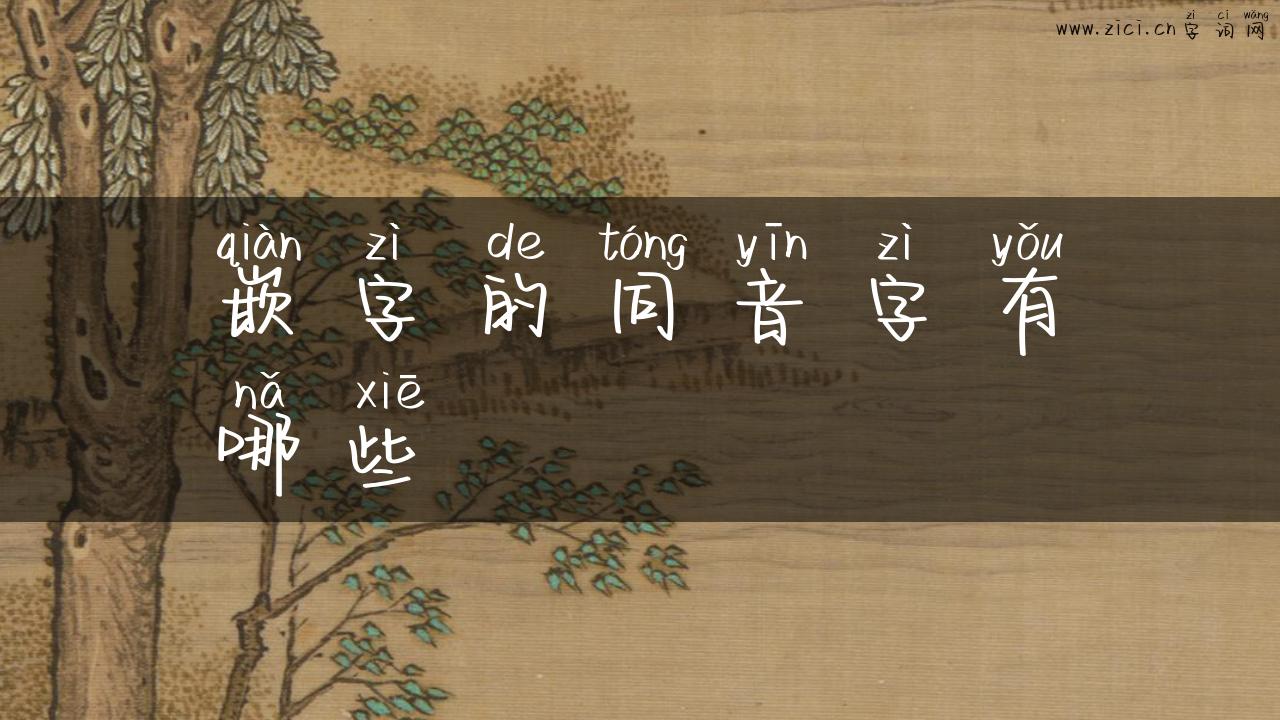 zì cí wǎng
www.zici.cn 字词网
qiàn zì de tóng yīn zì yǒu
嵌字的同音字有
nǎ xiē
哪些